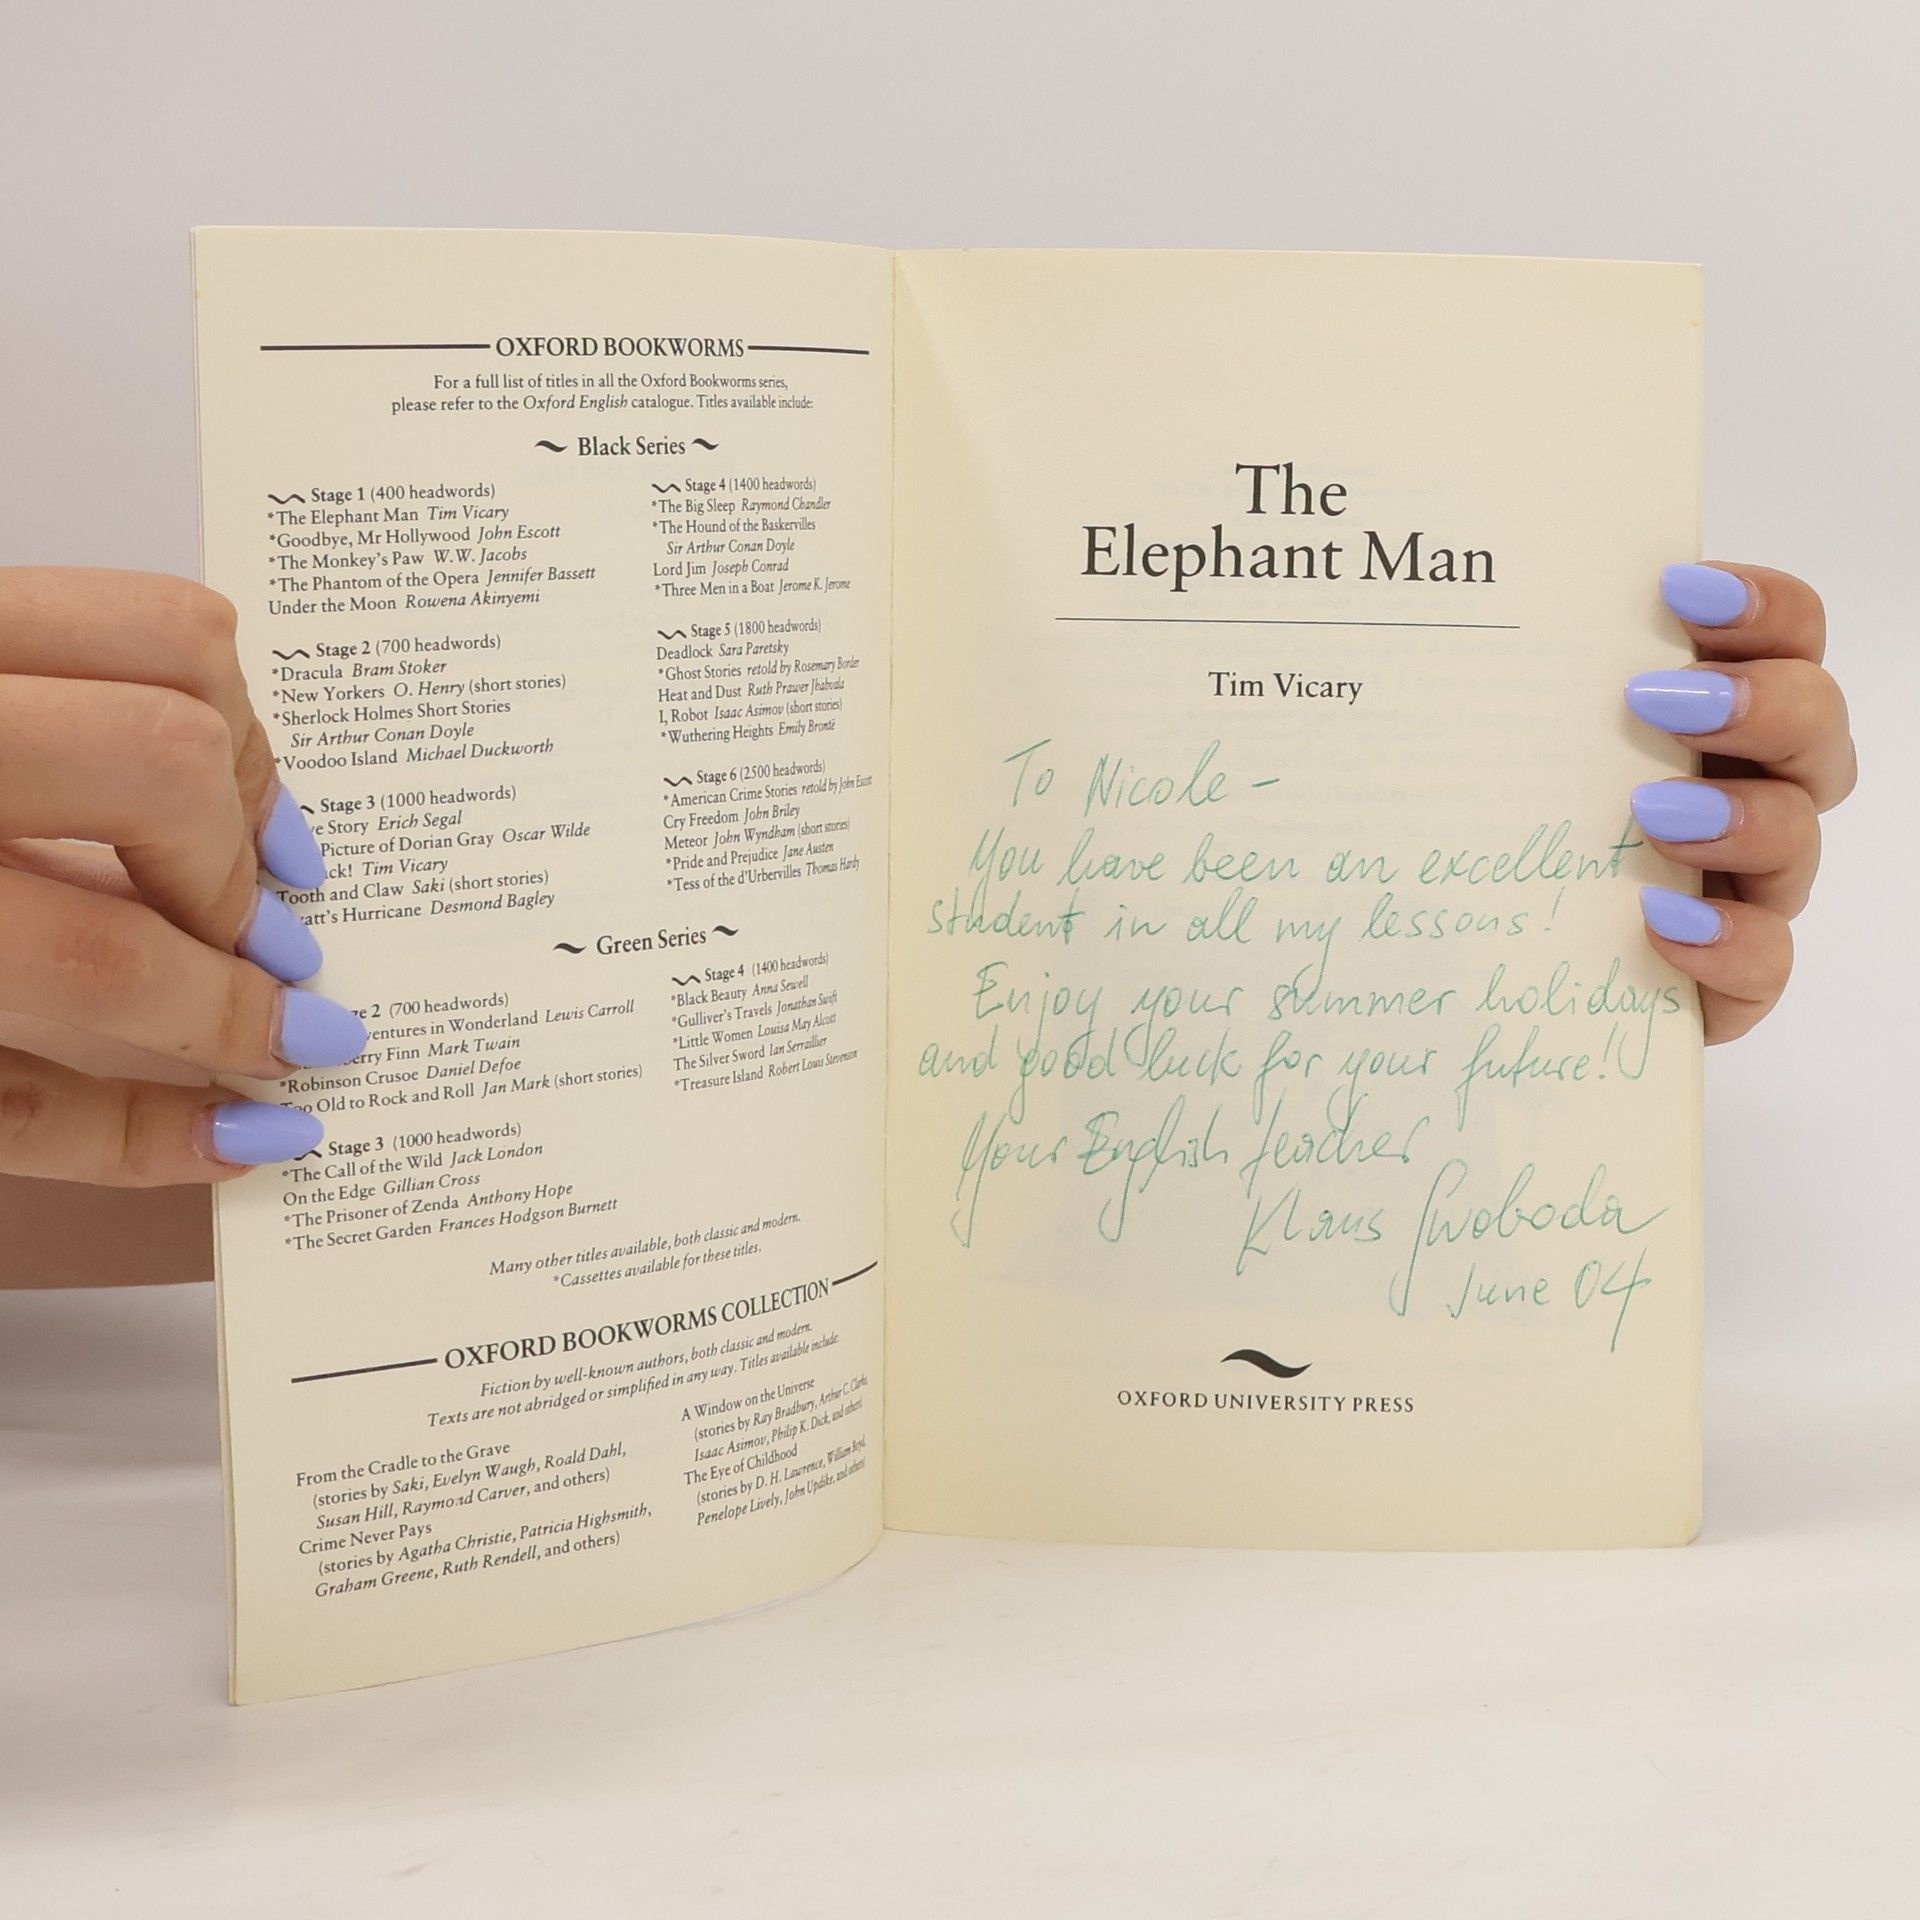 OXFORD BOOKWORMS
For a full list of titles in all the Oxford Bookworms series,
please refer to the Oxford English catalogue. Titles available include:
Black Series
Stage 1 (400 headwords)
*The Elephant Man Tim Vicary
*Goodbye, Mr Hollywood John Escott
*The Monkey's Paw W.W. Jacobs
*The Phantom of the Opera Jennifer Bassett
Under the Moon Rowena Akinyemi
Stage 2 (700 headwords)
*Dracula Bram Stoker
*New Yorkers O. Henry (short stories)
*Sherlock Holmes Short Stories
Sir Arthur Conan Doyle
*Voodoo Island Michael Duckworth
Stage 3 (1000 headwords)
Story Erich Segal
Picture of Dorian Gray Oscar Wilde
Tim Vicary
Tooth and Claw Saki (short stories)
Hurricane Desmond Bagley
Stage 4 (1400 headwords)
*The Big Sleep Raymond Chandler
*The Hound of the Baskervilles
Sir Arthur Conan Doyle
Lord Jim Joseph Conrad
*Three Men in a Boat Jerome K. Jerome
Stage 5 (1800 headwords)
Deadlock Sara Paretsky
*Ghost Stories retold by Rosemary Border
Heat and Dust Ruth Prawer Jhabvala
I, Robot Isaac Asimov (short stories)
*Wuthering Heights Emily Brontë
Stage 6 (2500 headwords)
*American Crime Stories retold by John Escott
Cry Freedom John Briley
Meteor John Wyndham (short stories)
*Pride and Prejudice Jane Austen
*Tess of the d'Urbervilles Thomas Hardy
Green Series
2 (700 headwords)
in Wonderland Lewis Carroll
Finn Mark Twain
*Robinson Crusoe Daniel Defoe
Too Old to Rock and Roll Jan Mark (short stories)
Stage 3 (1000 headwords)
*The Call of the Wild Jack London
On the Edge Gillian Cross
*The Prisoner of Zenda Anthony Hope
*The Secret Garden Frances Hodgson Burnett
Stage 4 (1400 headwords)
*Black Beauty Anna Sewell
*Gulliver's Travels Jonathan Swift
*Little Women Louisa May Alcott
The Silver Sword Ian Serraillier
*Treasure Island Robert Louis Stevenson
Many other titles available, both classic and modern.
*Cassettes available for these titles.
OXFORD BOOKWORMS COLLECTION
Fiction by well-known authors, both classic and modern.
Texts are not abridged or simplified in any way. Titles available include:
From the Cradle to the Grave
(stories by Saki, Evelyn Waugh, Roald Dahl,
Susan Hill, Raymond Carver, and others)
Crime Never Pays
(stories by Agatha Christie, Patricia Highsmith,
Graham Greene, Ruth Rendell, and others)
A Window on the Universe
(stories by Ray Bradbury, Arthur C. Clarke,
Isaac Asimov, Philip K. Dick, and others)
The Eye of Childhood
(stories by D. H. Lawrence, William Boyd,
Penelope Lively, John Updike, and others)
The
Elephant Man
Tim Vicary
To Nicole –
You have been an excellent
student in all my lessons!
Enjoy your summer holidays
and good luck for your future!
Your English teacher
Klaus Swoboda
June 04
OXFORD UNIVERSITY PRESS